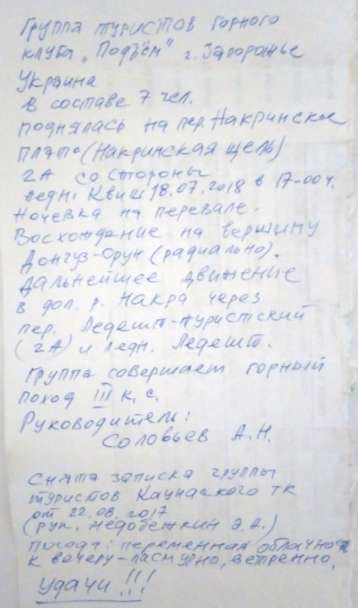 Группа туристов горного
клуба „Подъём" г. Запорожье
Украина
в составе 7 чел.
поднялась на пер. Накринское
плато (Накринская щель)
2А со стороны
ледн. Квиш 18.07.2018 в 17-00ч.
Ночёвка на перевале.
Восхождение на вершину
Донгуз-Орун (радиально).
Дальнейшее движение
в дол. р. Накра через
пер. Ледешт-туристский
(2А) и ледн. Ледешт.
Группа совершает горный
поход III к.с.
Руководитель:
Соловьев А.Н.
Снята записка группы
туристов Каунасского тк
от 22.08.2017
(рук. Недобежкин Э.А.)
Погода: переменная облачность
к вечеру-пасмурно, ветренно.
Удачи!!!